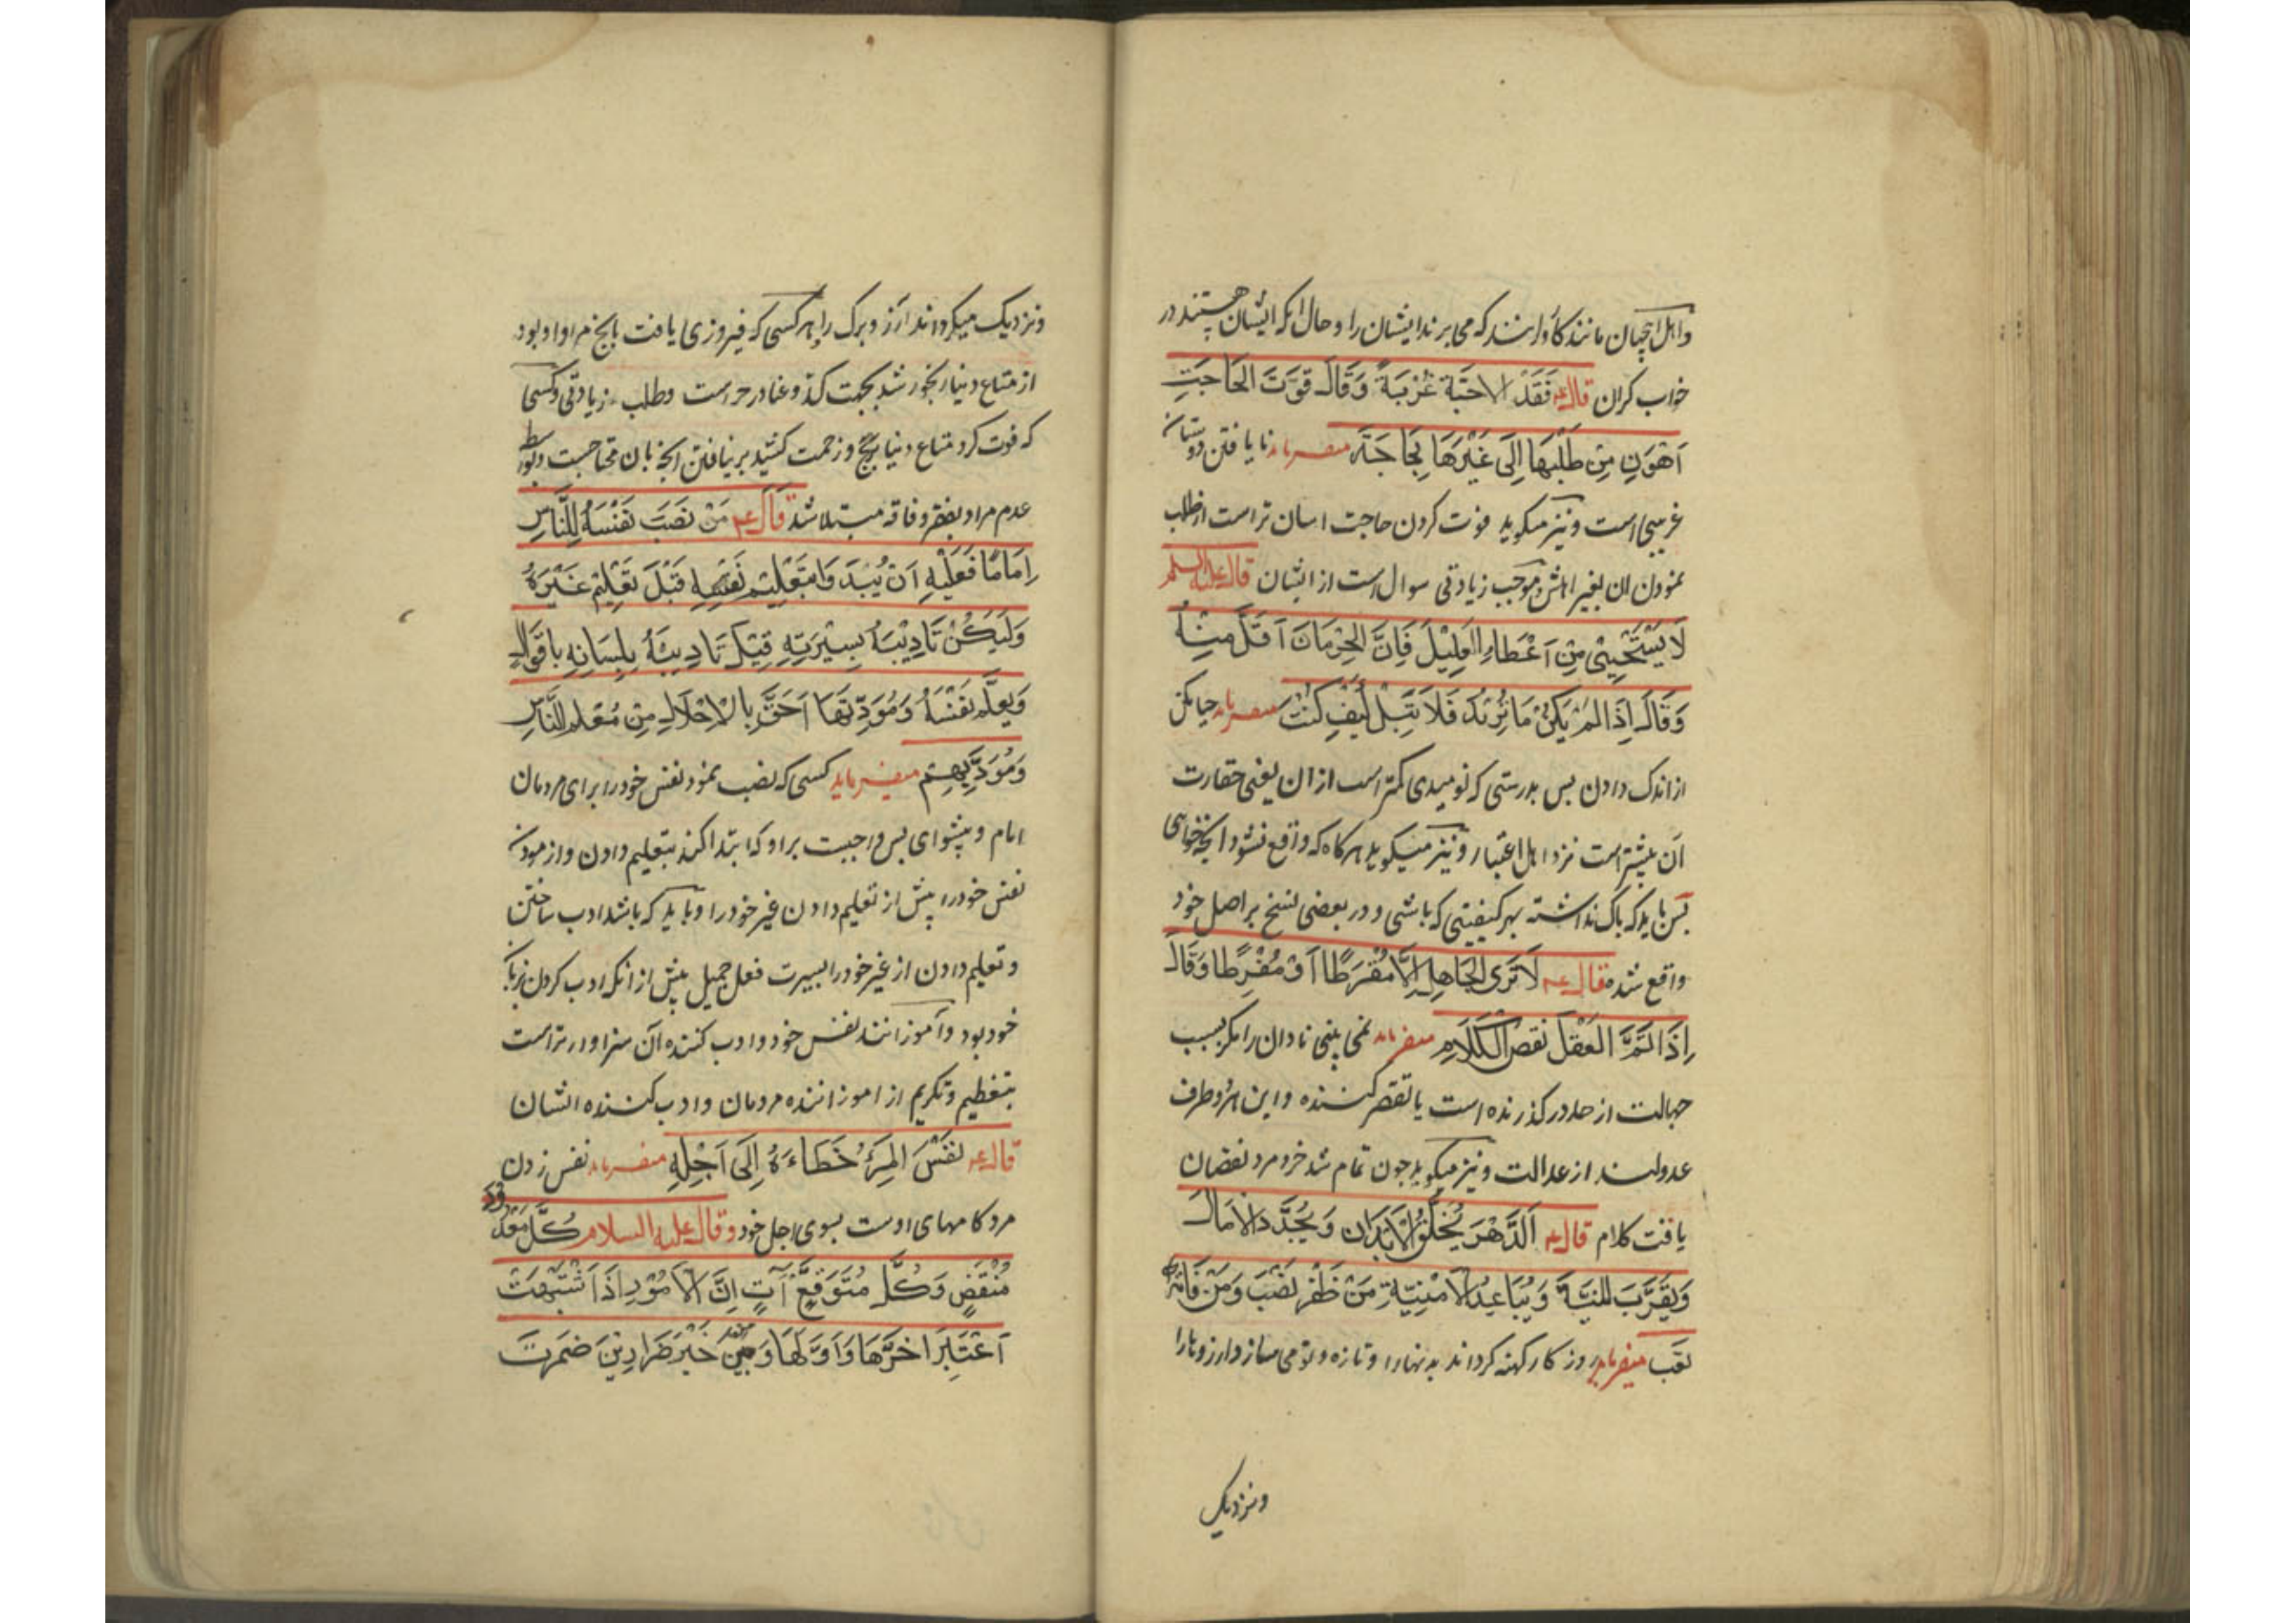 واهل اینجهان مانند کاروانند که می برند ایشان را و حال آنکه ایشان هستند در
خواب کران قال عم فَقْدُ الاَحِبَّة غُرْبَةً وَقَالَ فَوْتَ الحَاجَتِ
اَهْوَنِ مِنْ طَلَبِهَا اِلَی غَیْرِهَا بِحَاجَتَه میفرماید نا یافتن دوستان
غریبی است و نیز میکوید فوت کردن حاجت اسان تر است از طلب
نمودن ان بغیر اهلش و موجب زیادتی سوال است از ایشان قال علیه السلم
لَا یَسْتَحْیِیْ مِنْ اَعْطَاءِ القَلِیْلَ فَاِنَّ الحِرْمَانَ اَقَلَّ مِنْهُ
وَقَالَ اِذَا لَمْ یَکُنْ مَا تُرِیْدَ فَلَا تَبَلْ کَیْفَ کُنْتَ میفرماید حیا مکن
از اندک دادن بس بدرستی که نومیدی کمتر است از ان یعنی حقارت
آن بیشتر است نزد اهل اعتبار و نیز میکوید هر کاه که واقع نشود انچه خواهی
بس باید که باک نداشته بهر کیفیتی که باشی و در بعضی نسخ بر اصل خود
واقع شده قال عم لَا تَرَی الجَاهِلَ اِلَّا مُفْرَطًا اَوْ مُفْرِطًا وَقَالَ
اِذَا تَمَّ العَقْلَ نَقَصَ الکَلَامِ میفرماید نمی بینی نادان را مکر بسبب
جهالت از حد در کذرنده است یا تقصیر کننده و این هر دو طرف
عدولند از عدالت و نیز میکوید جون تمام شد خرد مرد نقصان
یافت کلام قال عم اَلدَّهْرَ یُخَلِّقُ الاَبْدَانِ وَیُجَدِّدَ الاَمَالَ
وَیُقَرِّبَ المَنِیَّةَ وَیُبَاعِدُ الاُمْنِیَّةِ مَنْ ظَفَرَ نَصَبَ وَمَنْ فَاتَهُ
تَعِبَ میفرماید روز کار کهنه کرداند بدنها را و تازه و نو می سازد ارزوها را
ونزدیک
ونزدیک میکرداند ارزو مرک را هر کسی که فیروزی یافت بانچ مراد او بود
از متاع دنیا رنجور شد بجهت کد و عنا در حراست وطلب زیادتی و کسی
که فوت کرد متاع دنیا برنج و زحمت کشید بر نیافتن انچه بان محتاجست و بواسطه
عدم مراد بفقر و فاقه مبتلا شد قال عم مَنْ نَصَبَ نَفْسَهُ لِلنَّاسِ
اِمَامًا فَعَلَیْهِ اَنْ یُبْدَءَ بِتَعْلِیْمِ نَفْسِهِ قَبْلَ تَعْلِیْمِ غَیْرَهُ
وَلْیَکُنْ تَادِیْبَهُ بِسِیْرَتِهِ قَبْلَ تَادِیبَهُ بِلِسَانِهِ باَقْوَالِ
وَیُعَلَّم نَفْسَهُ وَمُوَدِّبُهَا اَحَقَّ بِالاِجْلَالِ مِنْ مُعَلِمِ النَّاسِ
وَمُوَدِّبِهِمْ میفرماید کسی که نصب نمود نفس خود را برای مردمان
امام و پیشوای بس واجبست بر او که ابتدا کند بتعلیم دادن و ازمودن
نفس خود را پیش از تعلیم دادن غیر خود را و باید که باشد ادب ساختن
و تعلیم دادن از غیر خود را بسیرت فعل جمیل پیش از انکه ادب کردن بزبان
خود بود و آموزانند نفس خود و ادب کننده آن سزاوار تر است
بتعظیم وتکریم از اموزاننده مردمان وادب کننده ایشان
قال عم نَفَسَ المَرْءُ خَطَاءَهُ اِلَی اَجْلِهِ میفرماید نفس زدن
مرد کامهای اوست بسوی اجل خود و قال علیه السلام کُلَّ مَعْدُودٍ
مُنْقَضٍ وَکُلَّ مُتَوَقَّعٍ آتٍ اِنَّ الاُمُوْرِ اِذَا اشْتَبَهَتْ
اَعْتَبِرَ اخَرَّهَا وَاَوَّلِهَا وَمِنْ خَبْرَ ضَرَارِ بْنِ ضَمْرَتَ